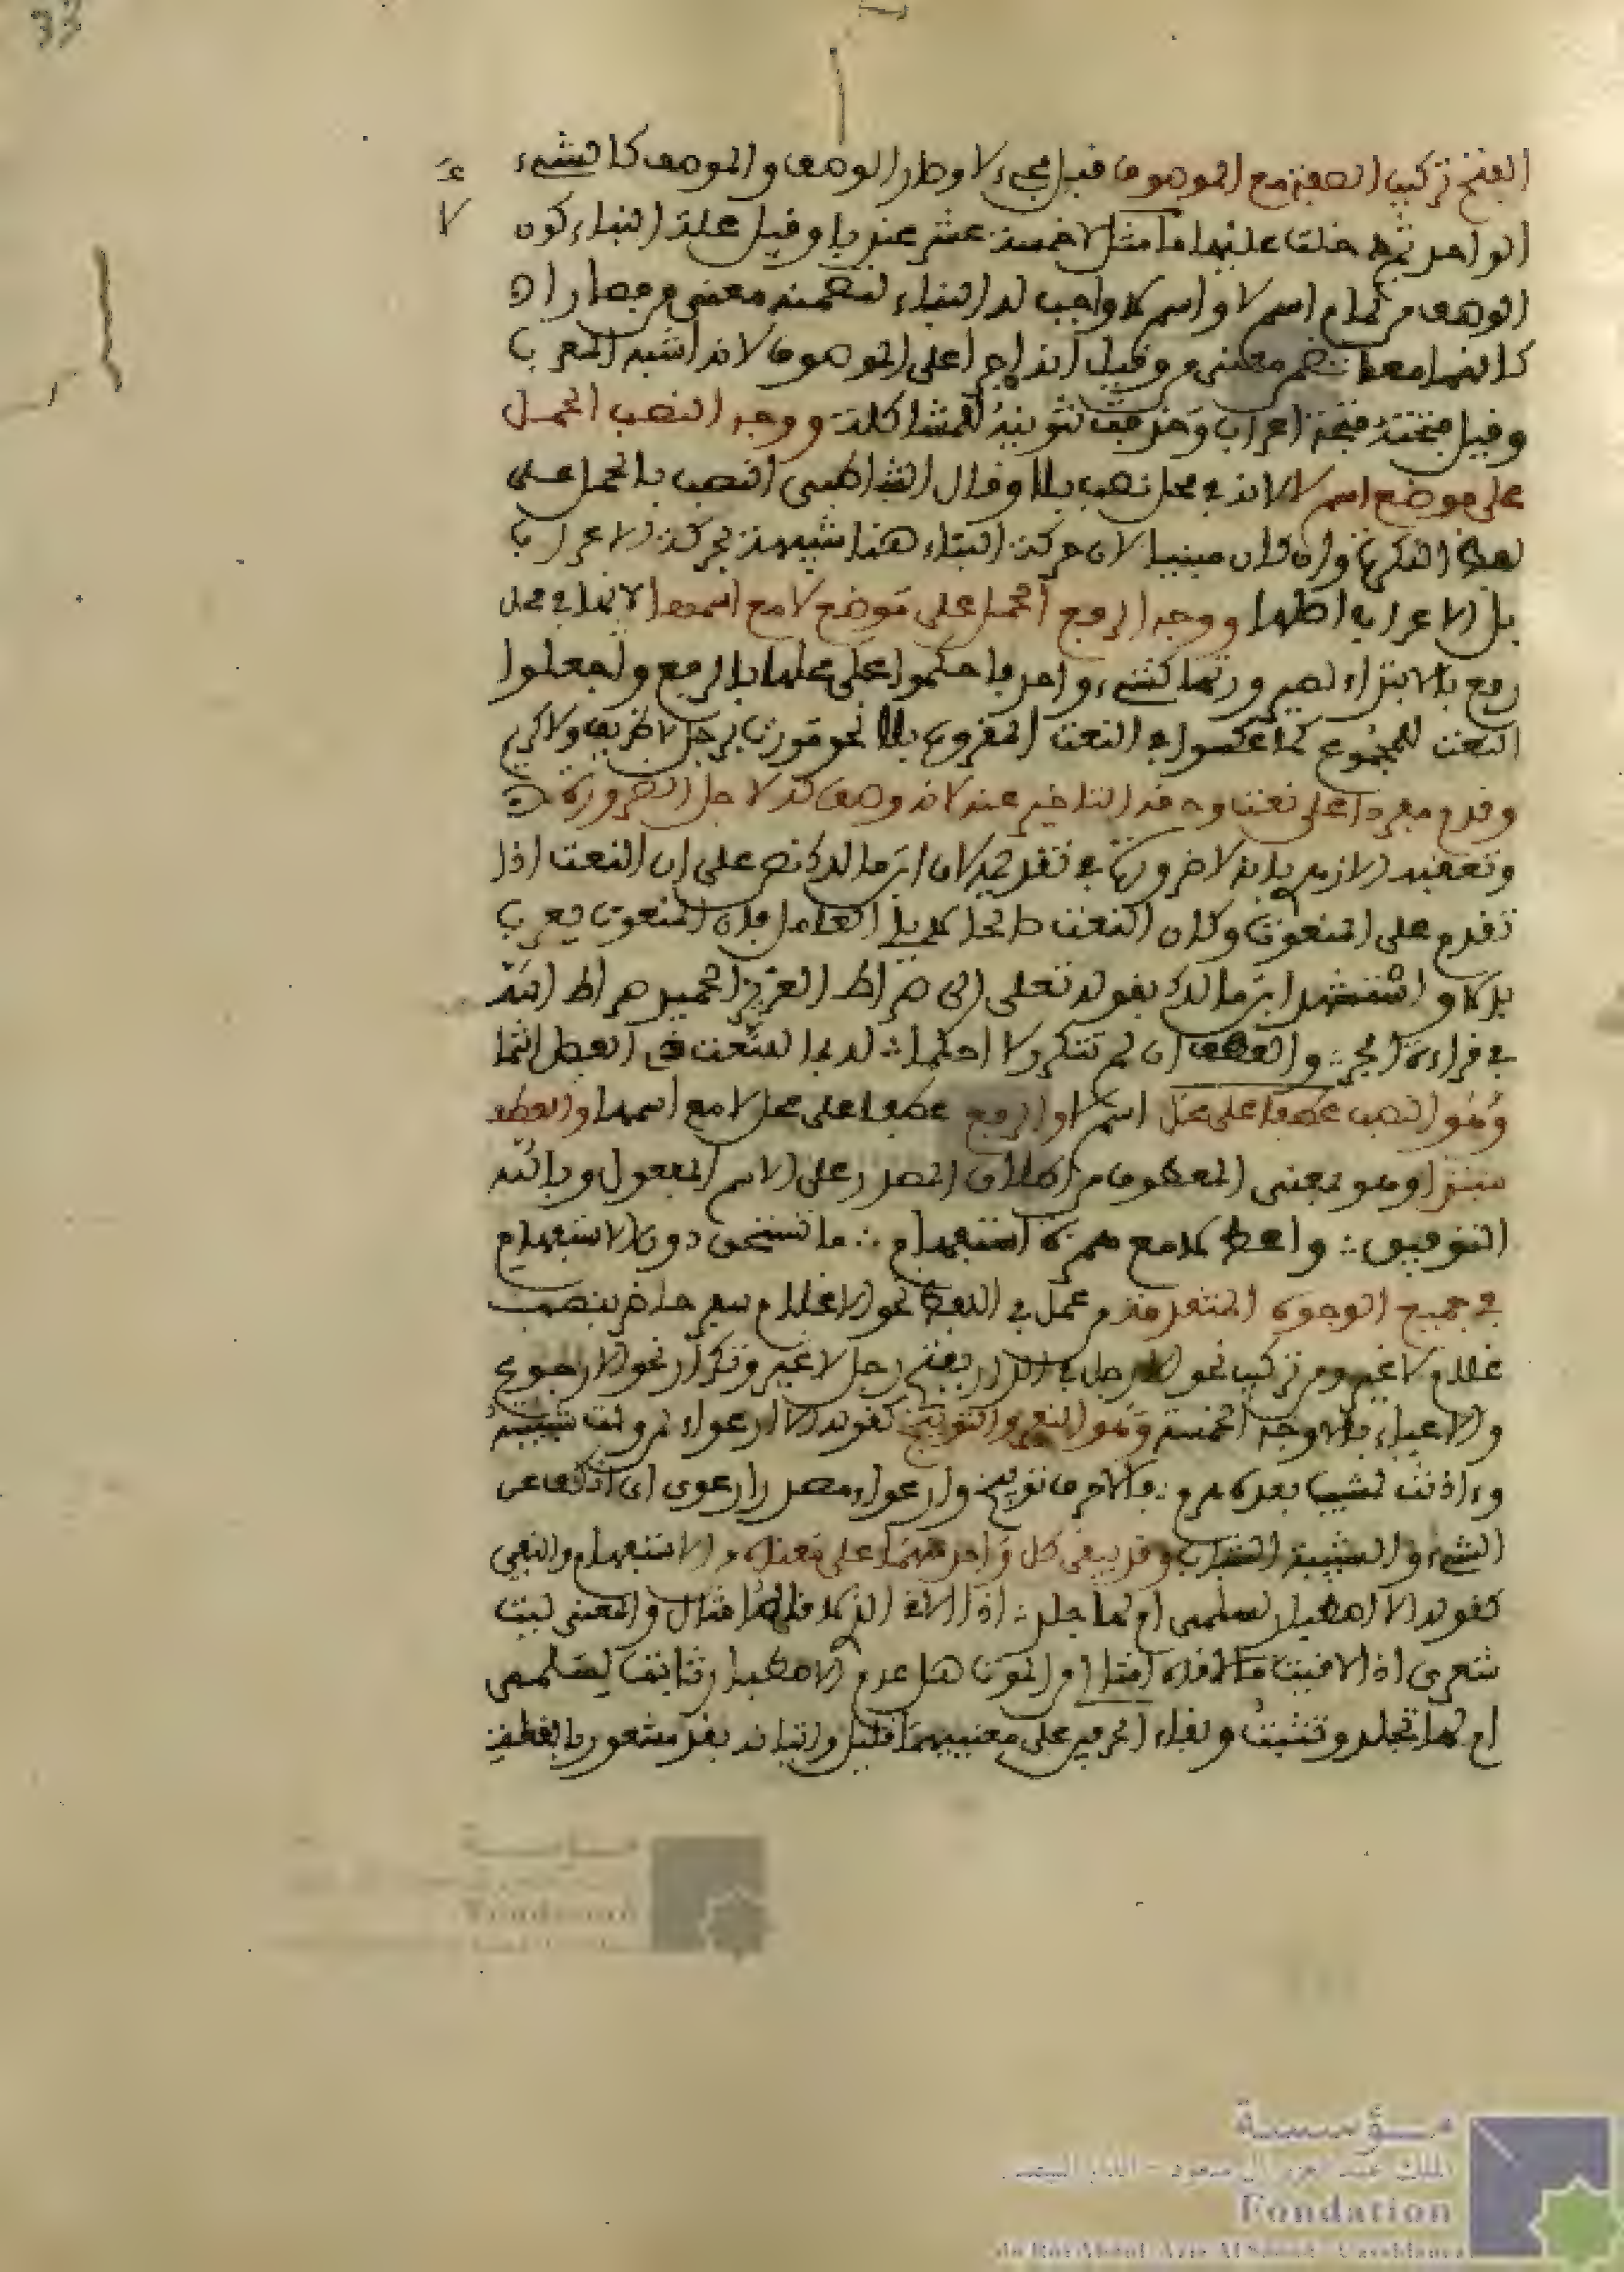 الفتح تركيب الصفة مع الموصوف قبل مجيء لا وصار الوصف والموصوف كالشيء
الواحد ثم دخلت عليهما لا مثل لا خمسة عشر عندنا وقيل علة البناء كون
الوصف من تمام اسم لا واسم لا واجب له البناء لتضمنه معنى من فصار
كأنهما معا تضمنا معنى من وقيل انه اجرا على الموصوف لانه اشبه المعرب
وقيل فتحته فتحة اعراب وحذف تنوينه للمشاكلة ووجه النصب الحمل
على موضع اسم لا لانه في محل نصب بلا وقال الشاطبي النصب بالحمل على
لفظ النكرة وان كان مبنيا لان حركة البناء هنا شبيهة بحركة الاعراب
بل الاعراب اصلها ووجه الرفع الحمل على موضع لا مع اسمها لانها في محل
رفع بالابتداء لصيرورتها كشيء واحد فحكموا على محلها بالرفع وجعلوا
النعت للمجموع كما عكسوا في النعت المقرون بلا نحو مررت برجل لا ظريف ولا كريم
وقدم مفردا على نعت وحقه التاخير عنه لانه وصف له لاجل الضرورة
وتعقبه الازهري بانه لا ضرورة في تقديمه لان ابن مالك نص على ان النعت اذا
تقدم على المنعوت وكان النعت صالحا لمباشرة العامل فان المنعوت يعرب
بدلا واستشهد ابن مالك بقوله تعلى الى صراط العزيز الحميد صراط الله
في قراءة الجر ∴ والعطف ان لم تتكرر لا احكما ∴ له بما للنعت ذي الفصل انتما
وهو النصب عطفا على محل اسم لا او الرفع عطفا على محل لا مع اسمها والعطف
مبتدا وهو بمعنى المعطوف من اطلاق المصدر على الاسم المفعول وبالله
التوفيق ∴ واعط لا مع همزة استفهام ∴ ما تستحق دون الاستفهام
في جميع الوجوه المتقدمة من عمل في اللفظ نحو الا غلام سفر حاضر بنصب
غلام لا غير ومن تركيب نحو الا رجل في الدار بفتح رجل لا غير وتكرار نحو الا رجوع
والا حياء بالاوجه الخمسة وهو النفي والتوبيخ كقوله الا ارعواء لمن ولت شبيبته
وءاذنت بمشيب بعده هرم ∴ فالاحرف توبيخ وارعواء مصدر ارعوى اي انكف عن
الشيء والشبيبة الشباب وقد يبقى كل واحد منهما على معناه من الاستفهام والنفي
كقوله الا اصطبار لسلمى ام لها جلد ∴ اذا الاقي الذي لاقاه امثالي والمعنى ليت
شعري اذا لاقيت ما لاقاه امثالي من الموت هل عدم الاصطبار ثابت لسلمى
ام لها تجلد وتثبت وبقاء الحرفين على معنييهما قليل واتيانه بقد مشعر بالقلة
مؤسسة
Fondation
مؤسسة
الملك عبد العزيز آل سعود - الدار البيضاء
Fondation
du Roi Abdul-Aziz Al Saoud - Casablanca